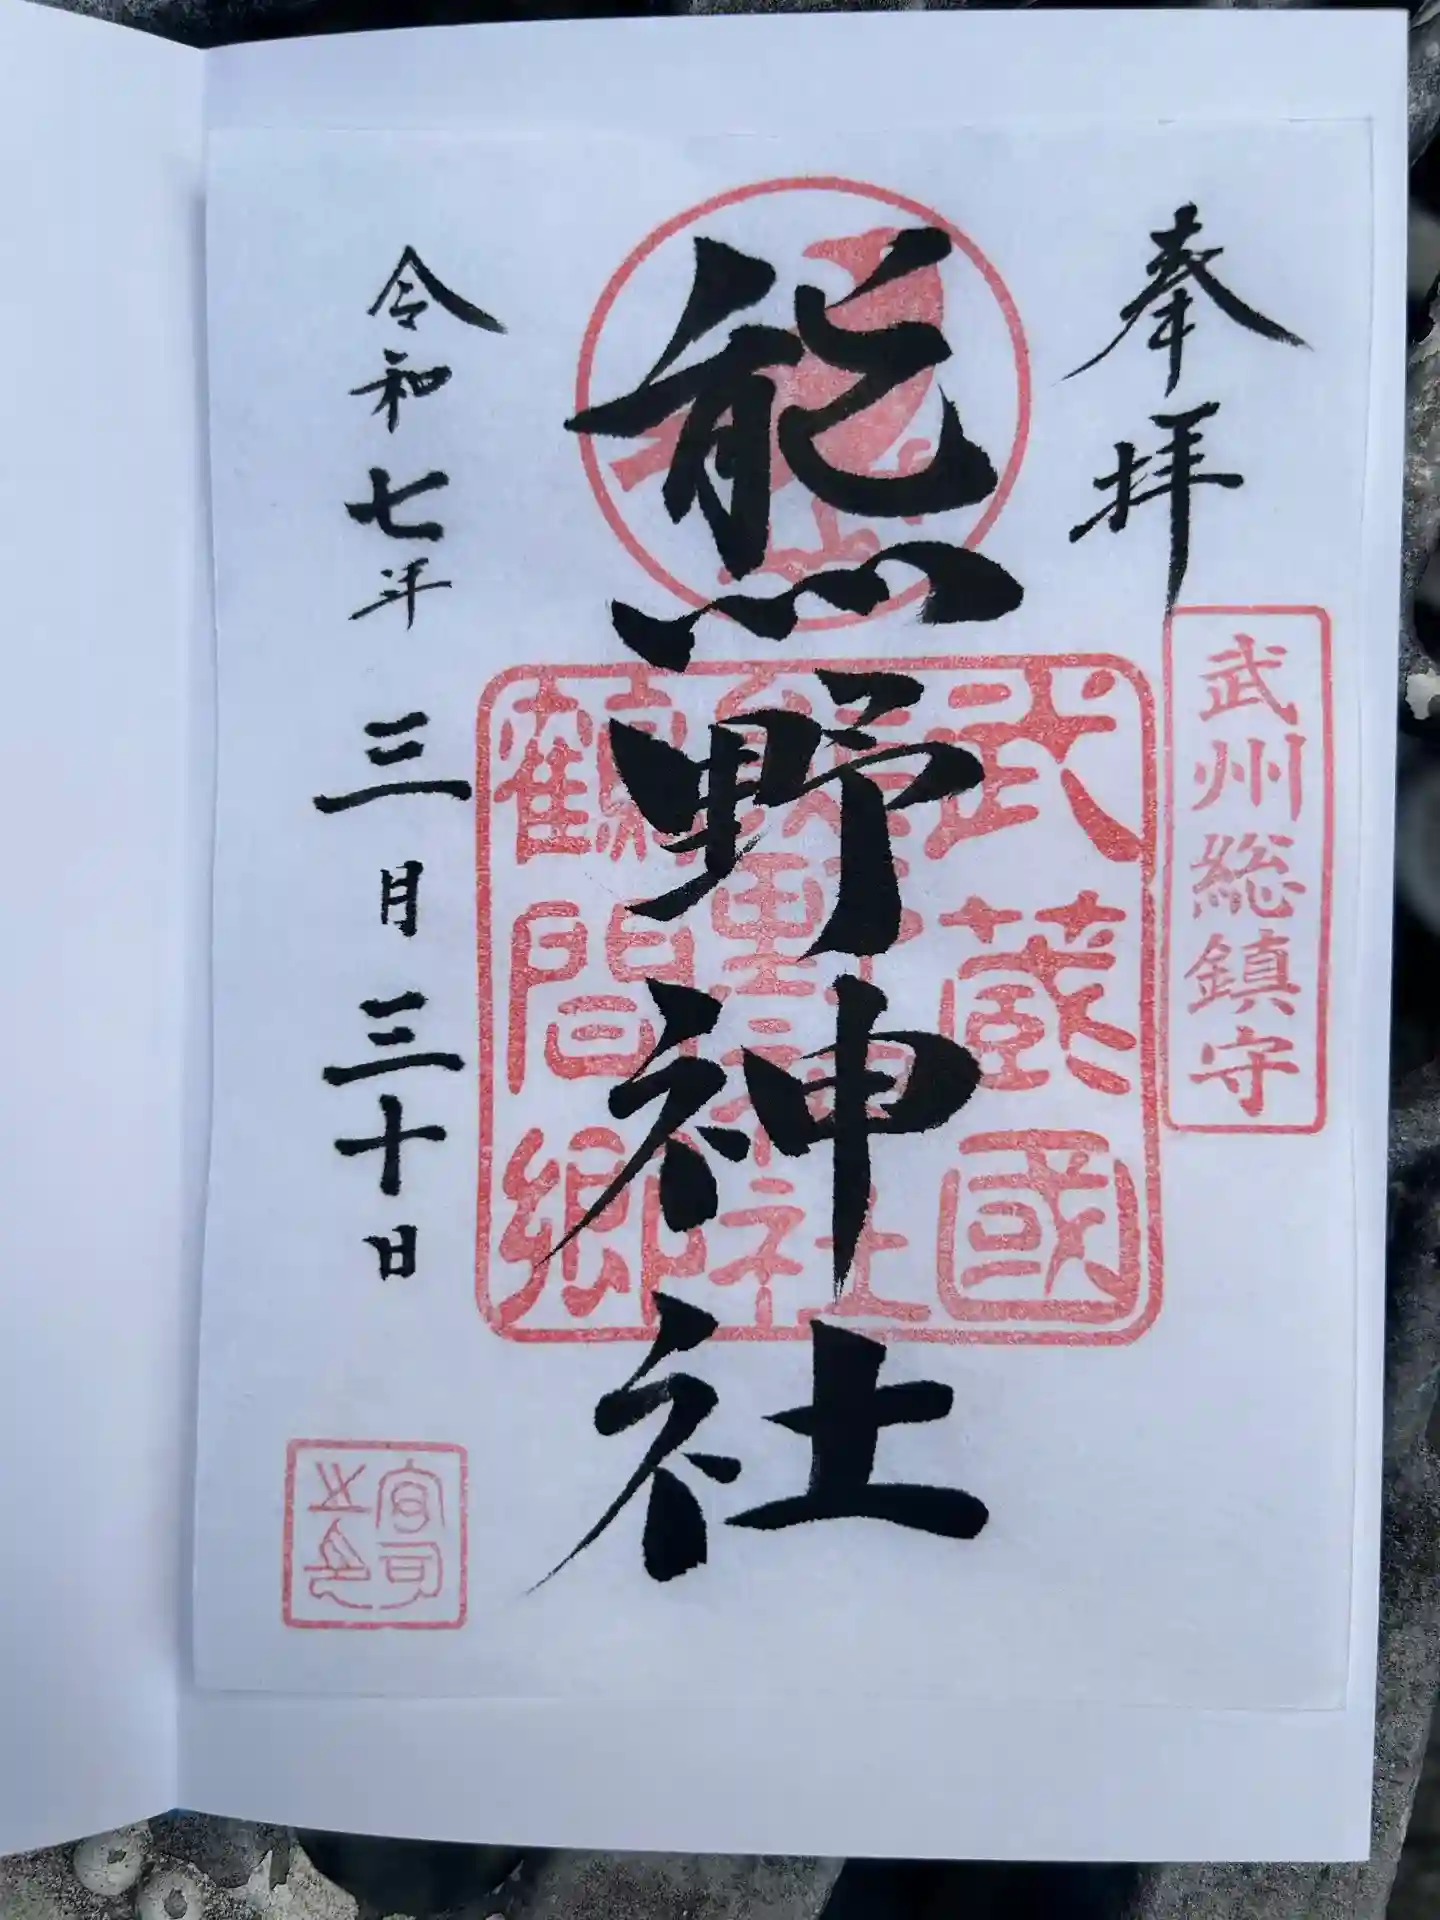 奉拝
武州総鎮守
熊野神社
武蔵國
熊野神社
鶴間郷
令和七年三月三十日
宮司之印